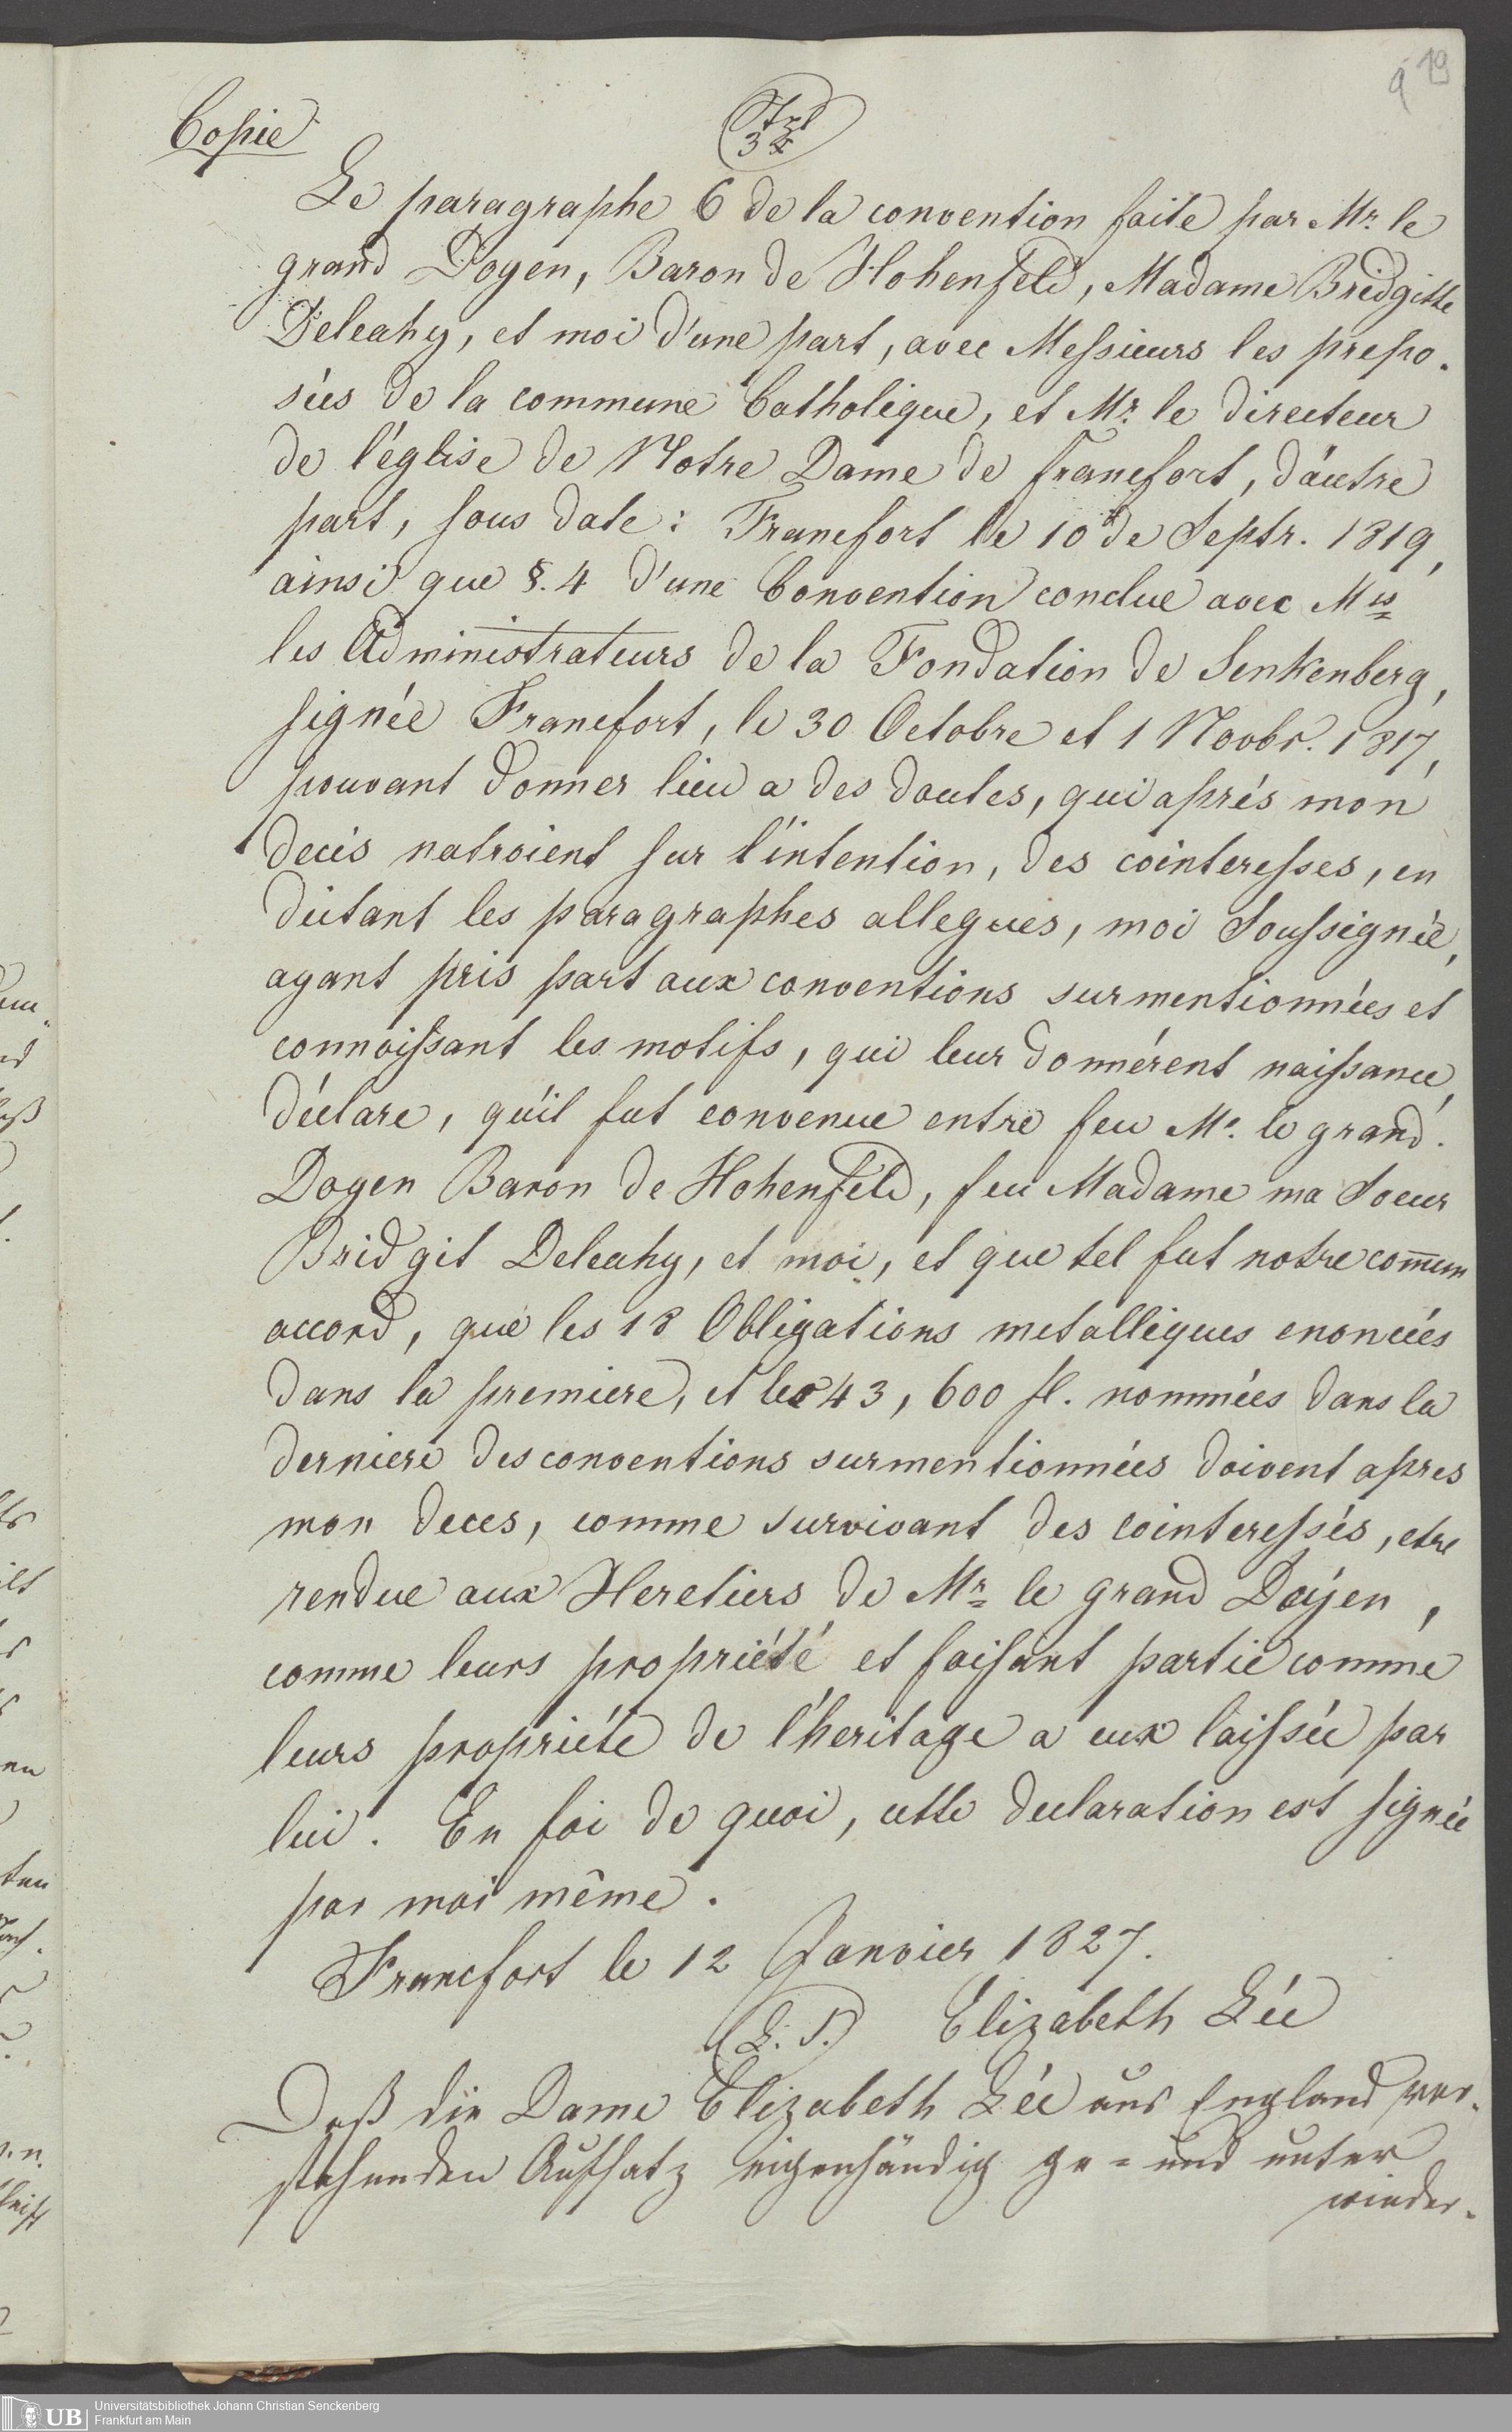 9 19
Copie
Stpl
3 x
Le paragraphe 6 de la convention faite par Mr. le
grand Doyen, Baron de Hohenfeld, Madame Bridgitte
Deleahy, et moi d'une part, avec Messieurs les prepo-
sées de la commune Catholique, et Mr. le directeur
de l'église de Notre Dame de francfort, d'autre
part, sous date: Francfort le 10 de Septr. 1819,
ainsi que §. 4 d'une Convention conclue avec Mrs
les Administrateurs de la Fondation de Senkenberg,
signée Francfort, le 30 Octobre et 1 Novbr. 1817,
pouvant donner lieu a des doutes, qui aprés mon
decés natroient sur l'intention, des cointeresses, en
dictant les paragraphes allegues, moi Soussignée,
ayant pris part aux conventions surmentionnées et
connoissant les motifs, qui leur donnérent naissance,
déclare, qu'il fut convenue entre feu Mr. le grand
Doyen Baron de Hohenfeld, feu Madame ma Soeur
Bridgit Deleahy, et moi, et que tel fut notre comun
accord, que les 18 Obligations metalliques enoncées
dans la premiere, et les 43,600 fl. nommées dans la
derniere des conventions surmentionnées doivent apres
mon deces, comme survivant des cointeressés, etre
rendue aux Heretiers de Mr. le grand Doyen,
comme leurs propriété et faisant partie comme
leurs propriéte de l'heritage a eux laissée par
lui. En foi de quoi, cette declaration est signée
par moi même.
Francfort le 12 Janvier 1827.
(L. S.) Elizabeth Lée
Daß die Dame Elizabeth Lée aus England vor-
stehenden Aufsatz eigenhändig ge- und unter
wieder-
UB Universitätsbibliothek Johann Christian Senckenberg
Frankfurt am Main